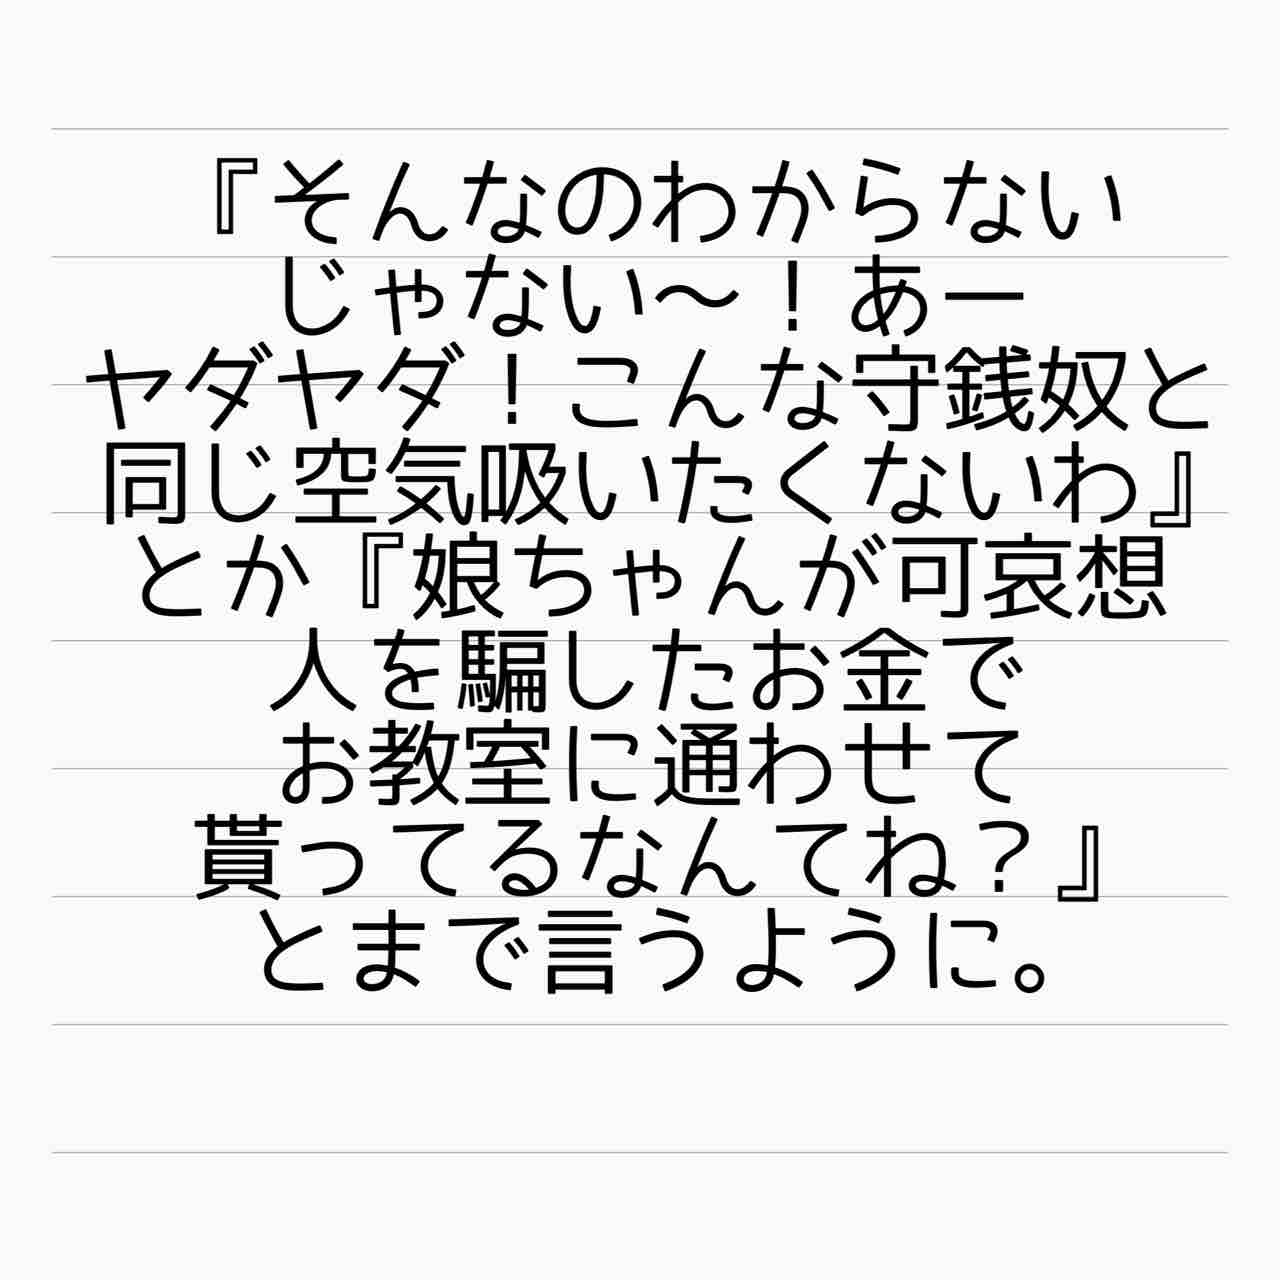 『そんなのわからない
じゃない〜！あー
ヤダヤダ！こんな守銭奴と
同じ空気吸いたくないわ』
とか『娘ちゃんが可哀想
人を騙したお金で
お教室に通わせて
貰ってるなんてね？』
とまで言うように。